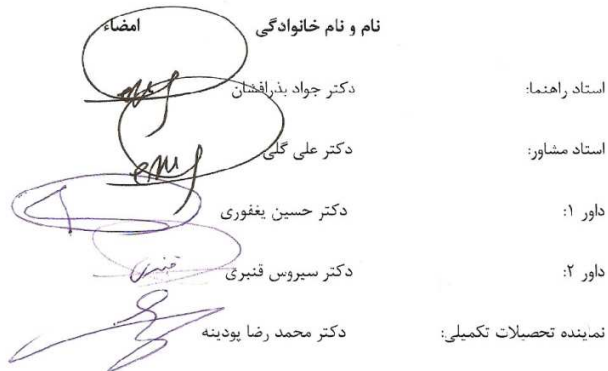 نام و نام خانوادگی امضاء
استاد راهنما: دکتر جواد بذرافشان
استاد مشاور: دکتر علی گلی
داور ۱: دکتر حسین یغفوری
داور ۲: دکتر سیروس قنبری قنبری
نماینده تحصیلات تکمیلی: دکتر محمد رضا پودینه